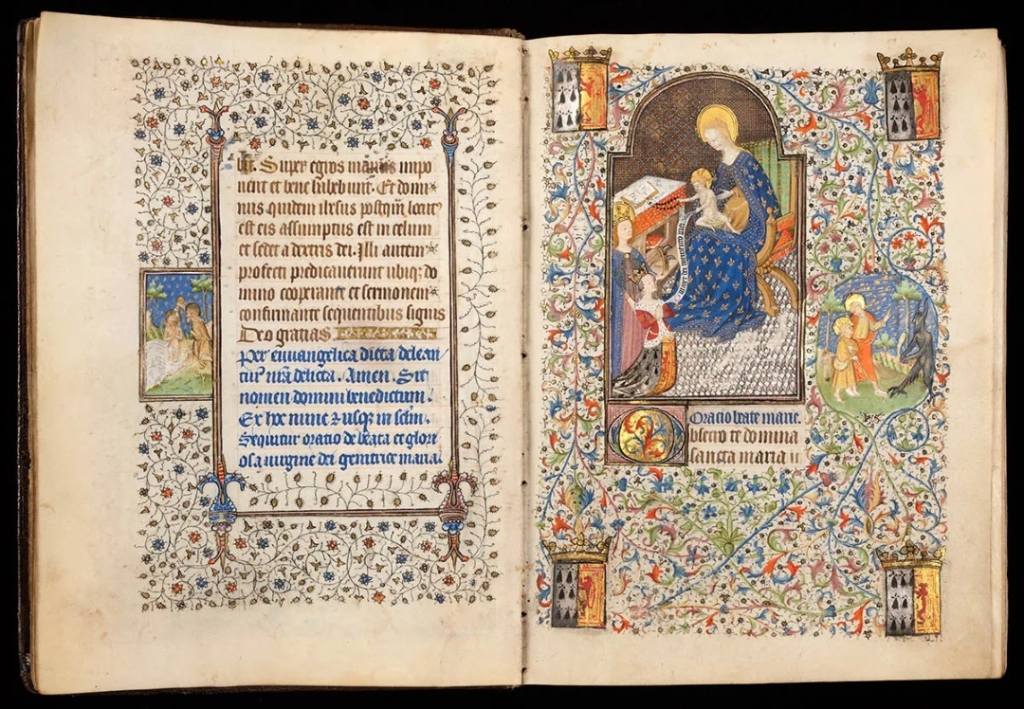 Super egros manus impo
nent et bene habebunt. Et domi
nus quidem ihesus postqm locut9
est eis assumptus est in celum
et sedet a dextris dei. Illi autem
profecti predicauerunt ubiq; do
mino cooperante et sermonem
confirmante sequentibus signis
Deo gratias
Per euuangelica dicta delean
tur nra delicta. Amen. Sit
nomen domini benedictum.
Ex hoc nunc ⁊ usq; in sclm.
Sequitur oratio de beata et glori
osa uirgine dei genitrice maria.
O mater dei memento mei
Oratio beate marie.
Obsecro te domina
sancta maria